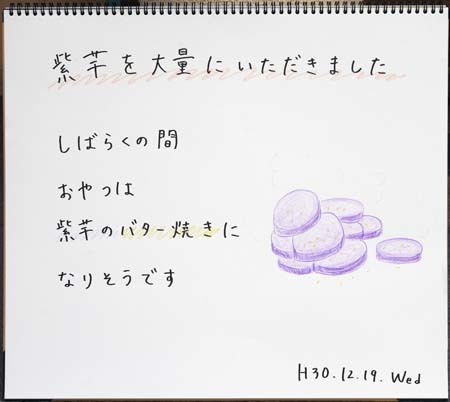 紫芋を大量にいただきました
しばらくの間
おやつは
紫芋のバター焼きに
なりそうです
H30.12.19. Wed